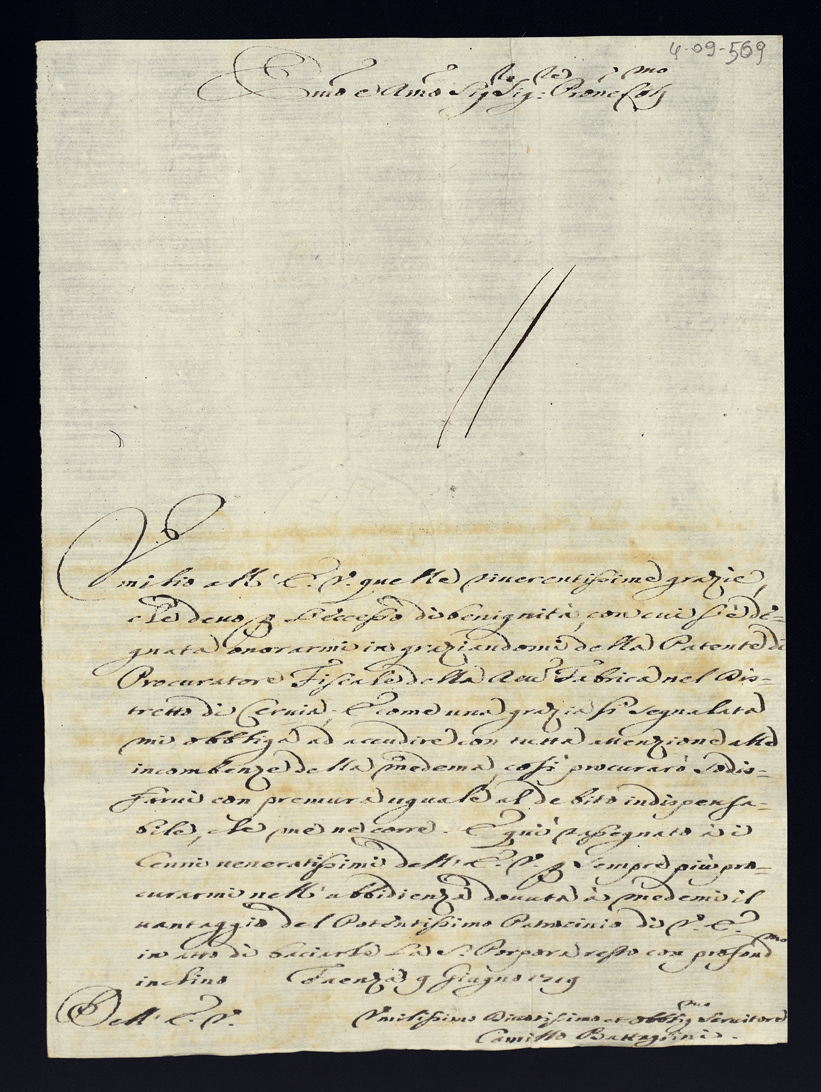 4-09-569
Em̃o e Rm̃o Sig.re Sig.re Prone Col.mo
Umilio all' E. V. quelle riverentissime grazie,
che devo p l'eccesso di benignità, con cui s'è de=
gnata onorarmi in graziandomi della Patente di
Procuratore Fiscale della Reu. Fabrica nel Dis=
tretto di Cervia, E come una grazia si segnalata
mi obbliga ad accudire con tutta attenzione alle
incombenze della medema, così procurarò sodis=
farui con premura uguale al debito indispensa=
bile, che me ne corre. E quì rassegnato à i
Cenni veneratissimi dell' E. V. p sempre più pro=
curarmi nell' abbidienza dovuta à medemi il
vantaggio del Potentissimo Patrocinio di V. E.
in atto di baciarle La S. Porpora resto con profond.mo
inchino Faenza 9 Giugno 1719
Dell' E. V.
Umilissimo Divotissimo et obblig.mo Servitore
Camillo Battaglini